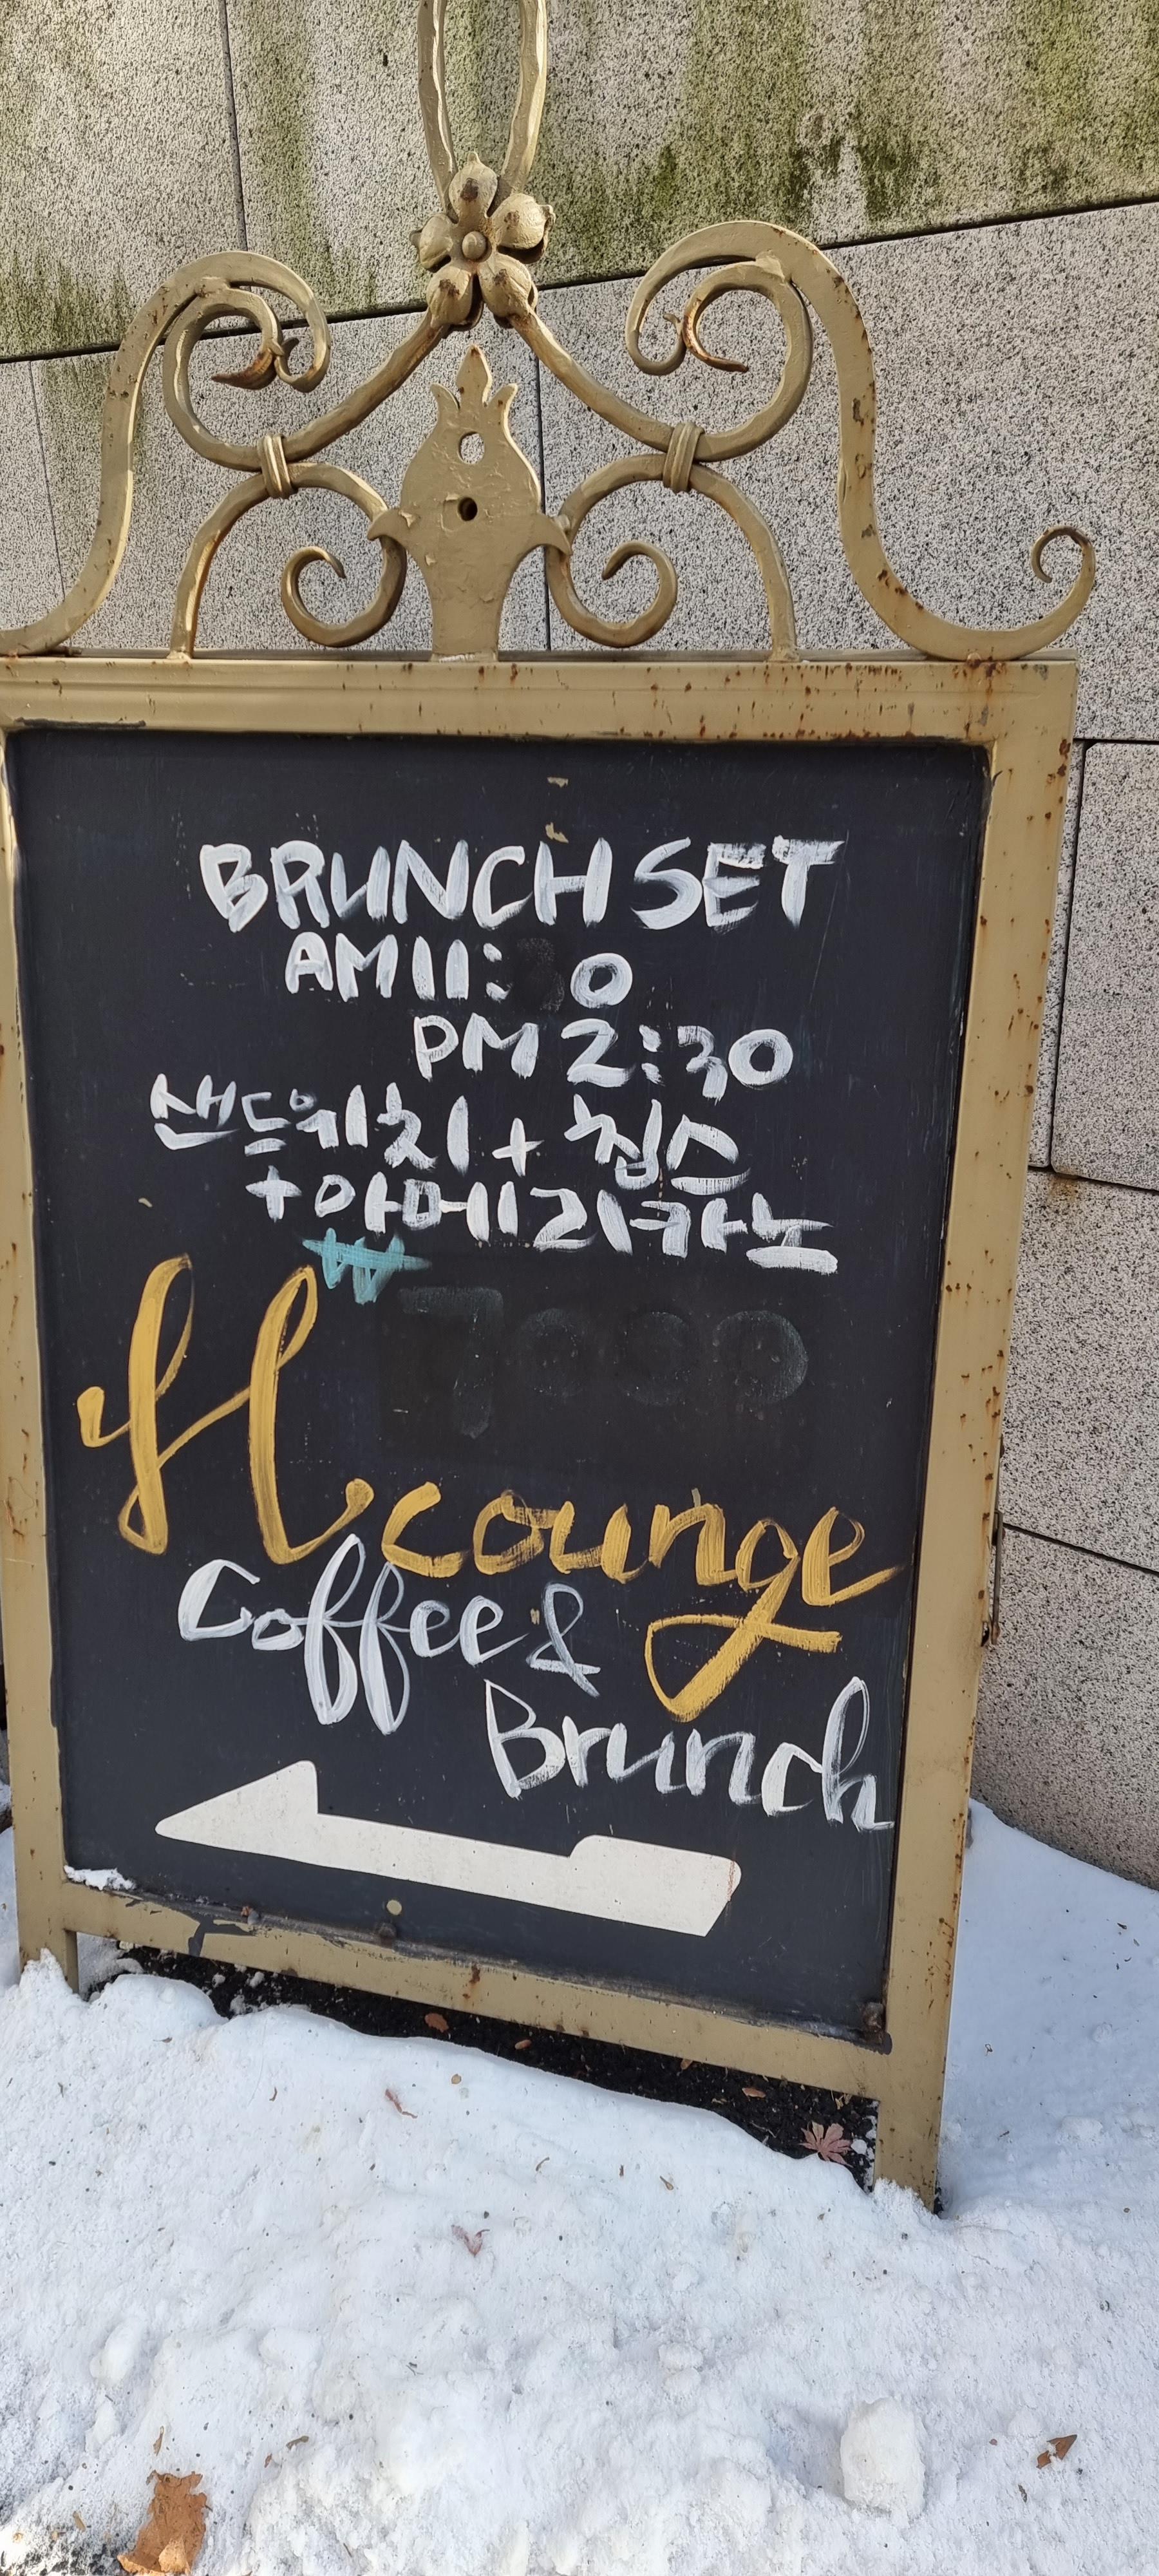 BRUNCH SET
AM 11: 0
PM 2:30
샌드위치 + 칩스
+ 아메리카노
₩
H Lounge
Coffee &
Brunch